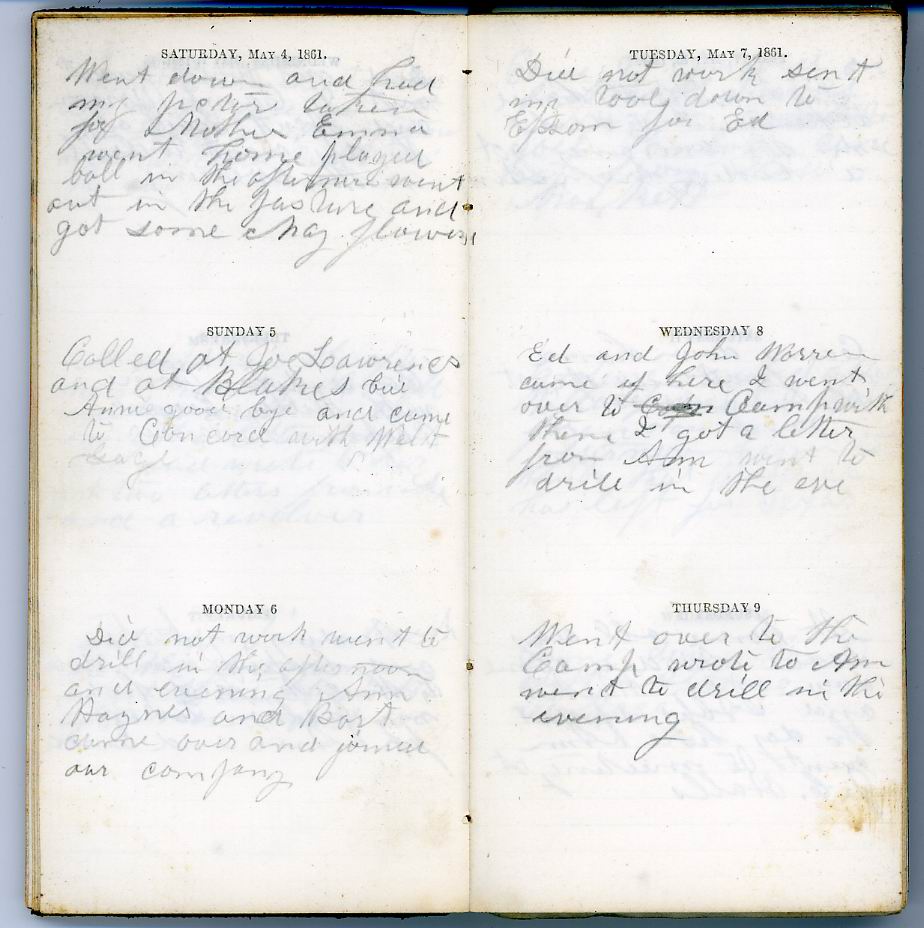 SATURDAY, MAY 4, 1861.
Went down and had
my pictur taken
for Mother Emma
went home played
ball in the afternoon went
out in the pasture and
got some May flowers
SUNDAY 5
Called at Joe Lawrences
and at Blakes bid
Annie good bye and came
to Concord with West
MONDAY 6
Did not work went to
drill in the afternoon
and evening Ann
Haynes and Bart
came over and joined
our company
TUESDAY, MAY 7, 1861.
Did not work sent
my tools down to
Epsom for Ed
WEDNESDAY 8
Ed and John Warren
came up here I went
over to Camp with
them I got a letter
from Ann went to
drill in the eve
THURSDAY 9
Went over to the
Camp wrote to Ann
went to drill in the
evening